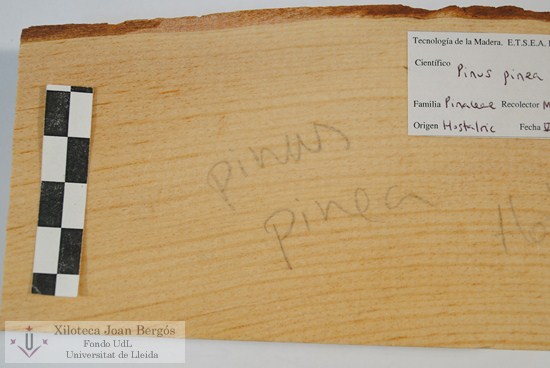 Tecnología de la Madera. E.T.S.E.A.
Científico Pinus pinea
Familia Pinaceae Recolector
Origen Hostalric Fecha
pinus
pinea
Xiloteca Joan Bergós
Fondo UdL
Universitat de Lleida